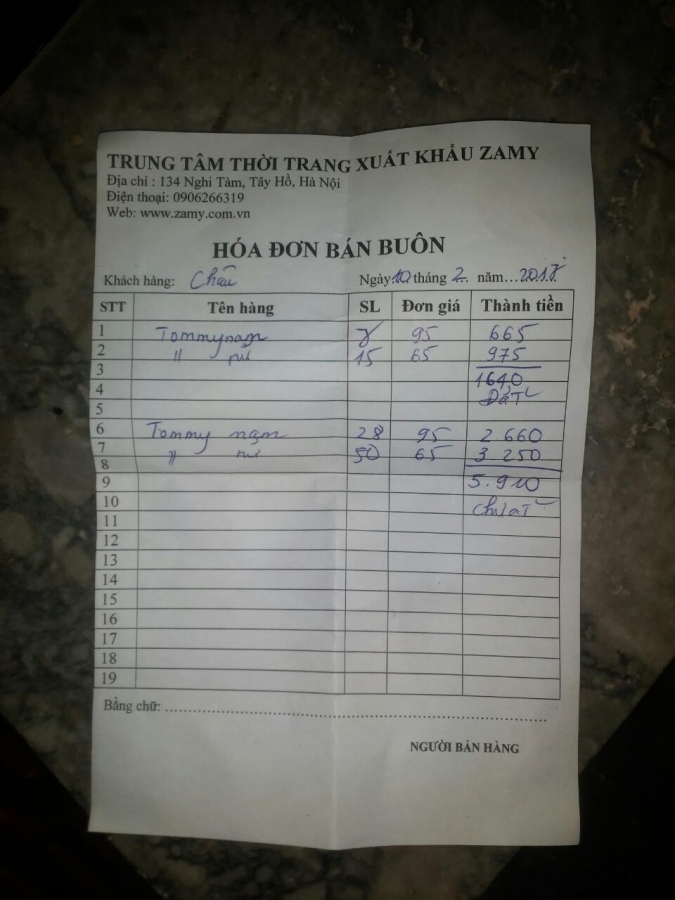 TRUNG TÂM THỜI TRANG XUẤT KHẨU ZAMY
Địa chỉ : 134 Nghi Tàm, Tây Hồ, Hà Nội
Điện thoại: 0906266319
Web: www.zamy.com.vn
HÓA ĐƠN BÁN BUÔN
Khách hàng: Châu Ngày 10 tháng 2 năm...2017
STT Tên hàng SL Đơn giá Thành tiền
1 Tommy nam 7 95 665
2 " nữ 15 65 975
3 1640
4 Đã T
5
6 Tommy nam 28 95 2 660
7 " nữ 50 65 3.250
8
9 5.910
10 Chưa T
11
12
13
14
15
16
17
18
19
Bằng chữ: ................................................
NGƯỜI BÁN HÀNG